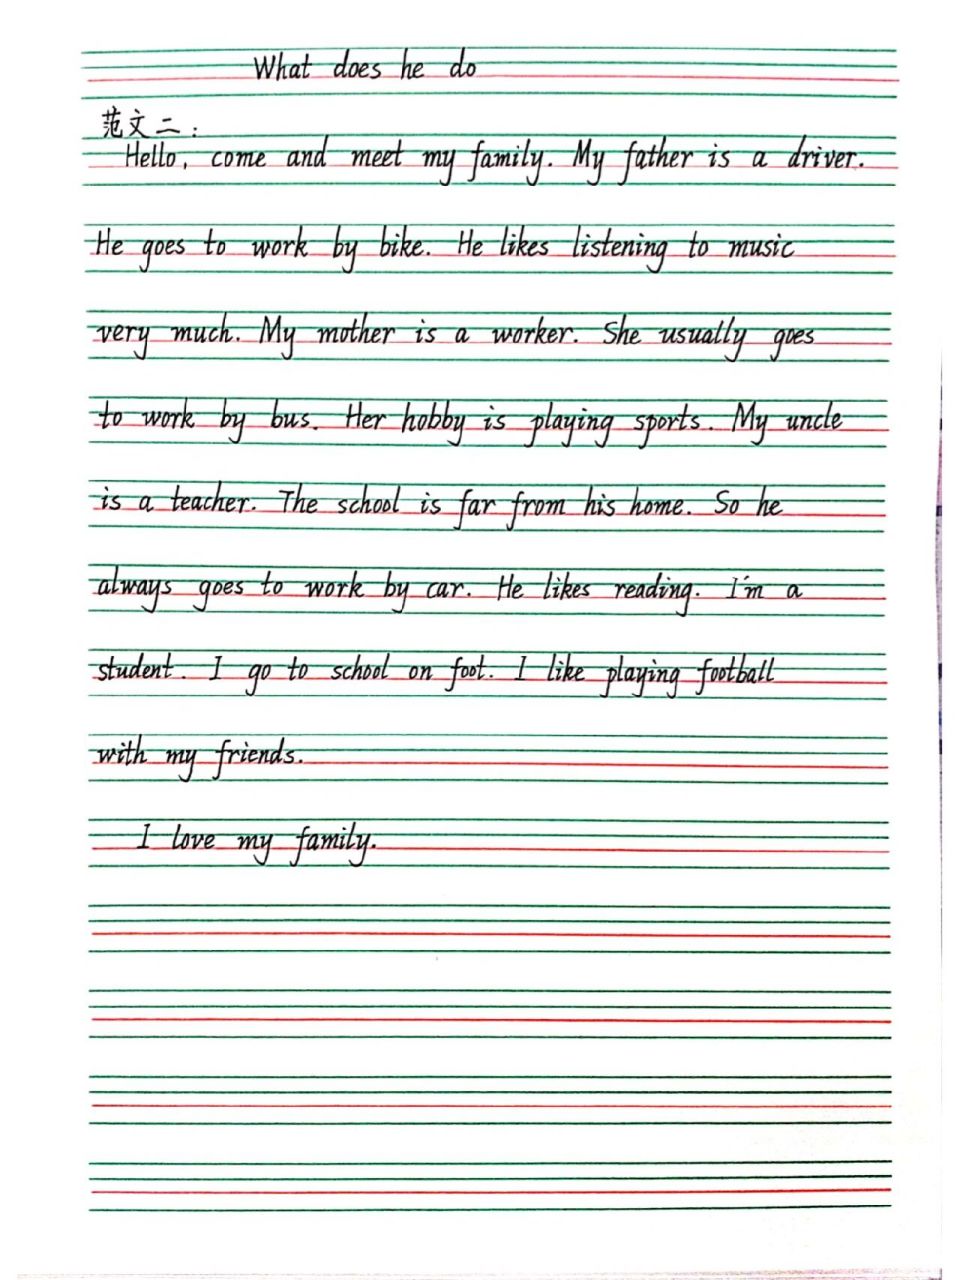 What does he do
范文二：
Hello, come and meet my family. My father is a driver.
He goes to work by bike. He likes listening to music
very much. My mother is a worker. She usually goes
to work by bus. Her hobby is playing sports. My uncle
is a teacher. The school is far from his home. So he
always goes to work by car. He likes reading. I'm a
student. I go to school on foot. I like playing football
with my friends.
I love my family.